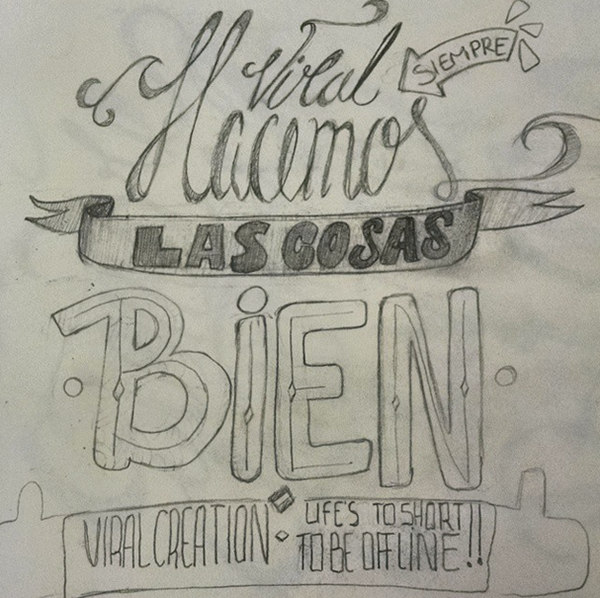 Viral
SIEMPRE
Hacemos
LAS COSAS
BiEN
VIRAL CREATION
LIFE'S TO SHORT
TO BE OFFLINE!!